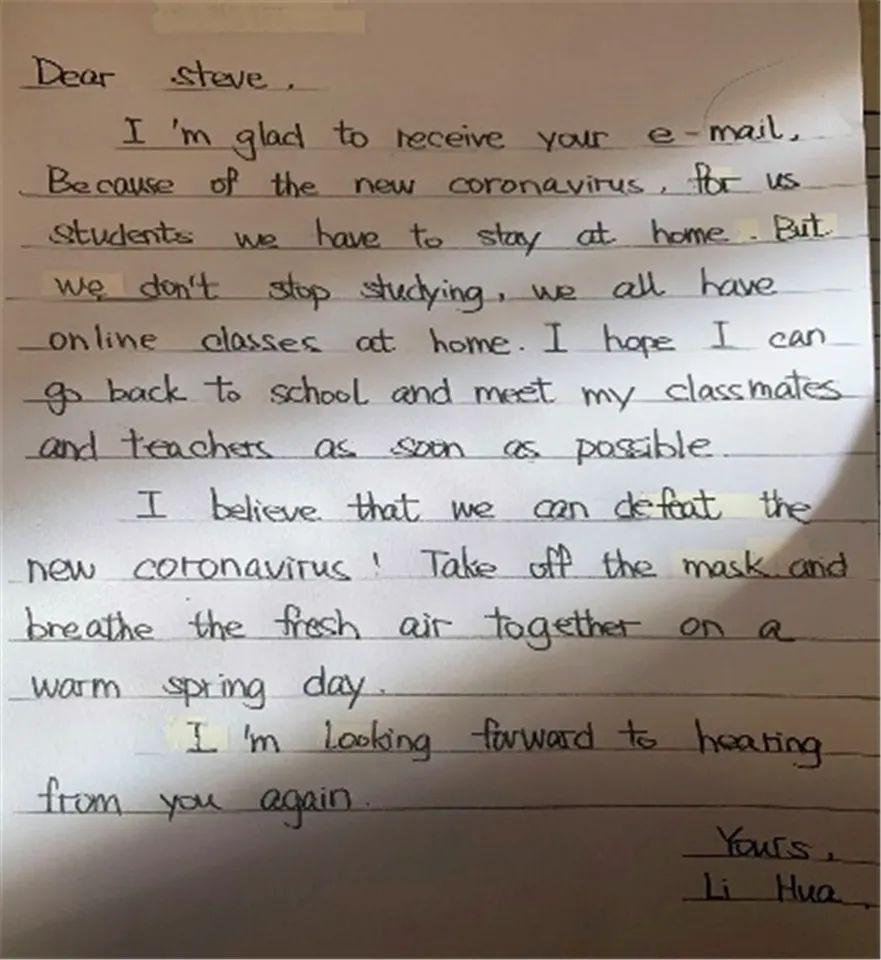 Dear steve,
I'm glad to receive your e-mail.
Because of the new coronavirus, for us
students we have to stay at home. But
we don't stop studying, we all have
online classes at home. I hope I can
go back to school and meet my classmates
and teachers as soon as possible.
I believe that we can defeat the
new coronavirus! Take off the mask and
breathe the fresh air together on a
warm spring day.
I'm looking forward to hearing
from you again.
Yours,
Li Hua